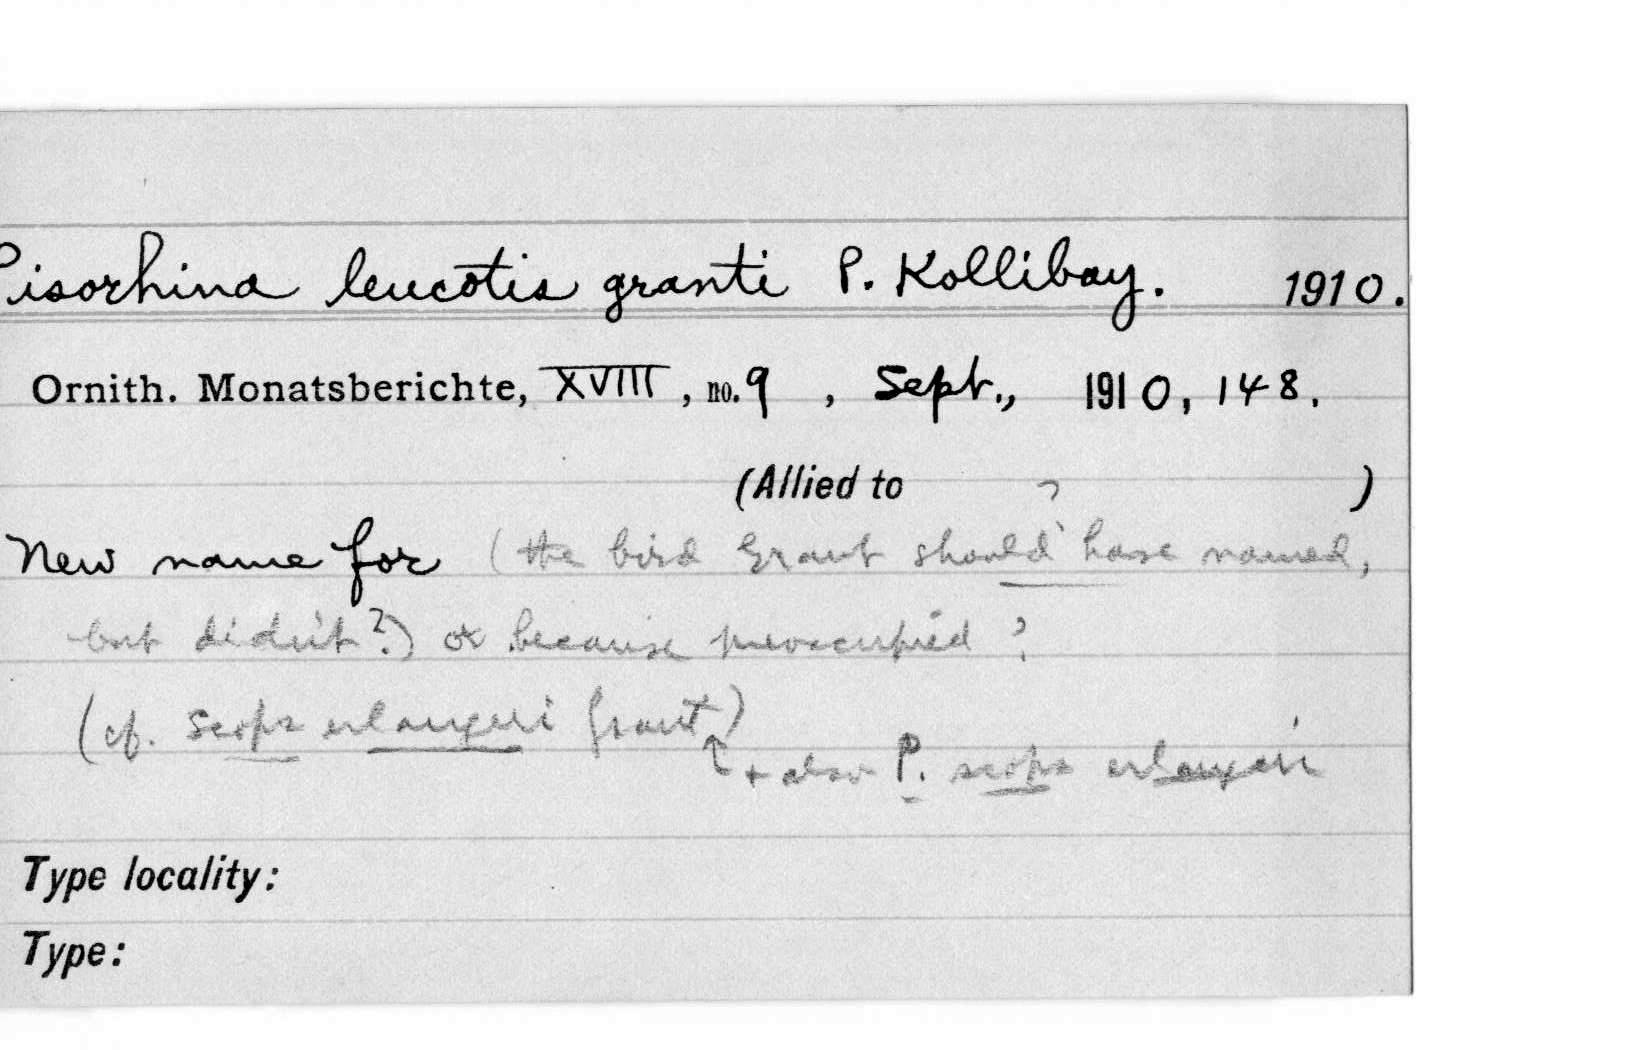 Pisorhina leucotis granti P. Kollibay. 1910.
Ornith. Monatsberichte, XVIII, no. 9, Sept., 1910, 148.
(Allied to ? )
New name for (the bird Grant should have named,
but didn't?) or because preoccupied?
(cf. Scops erlangeri Grant)
↑ + also P. scops erlangeri
Type locality:
Type: